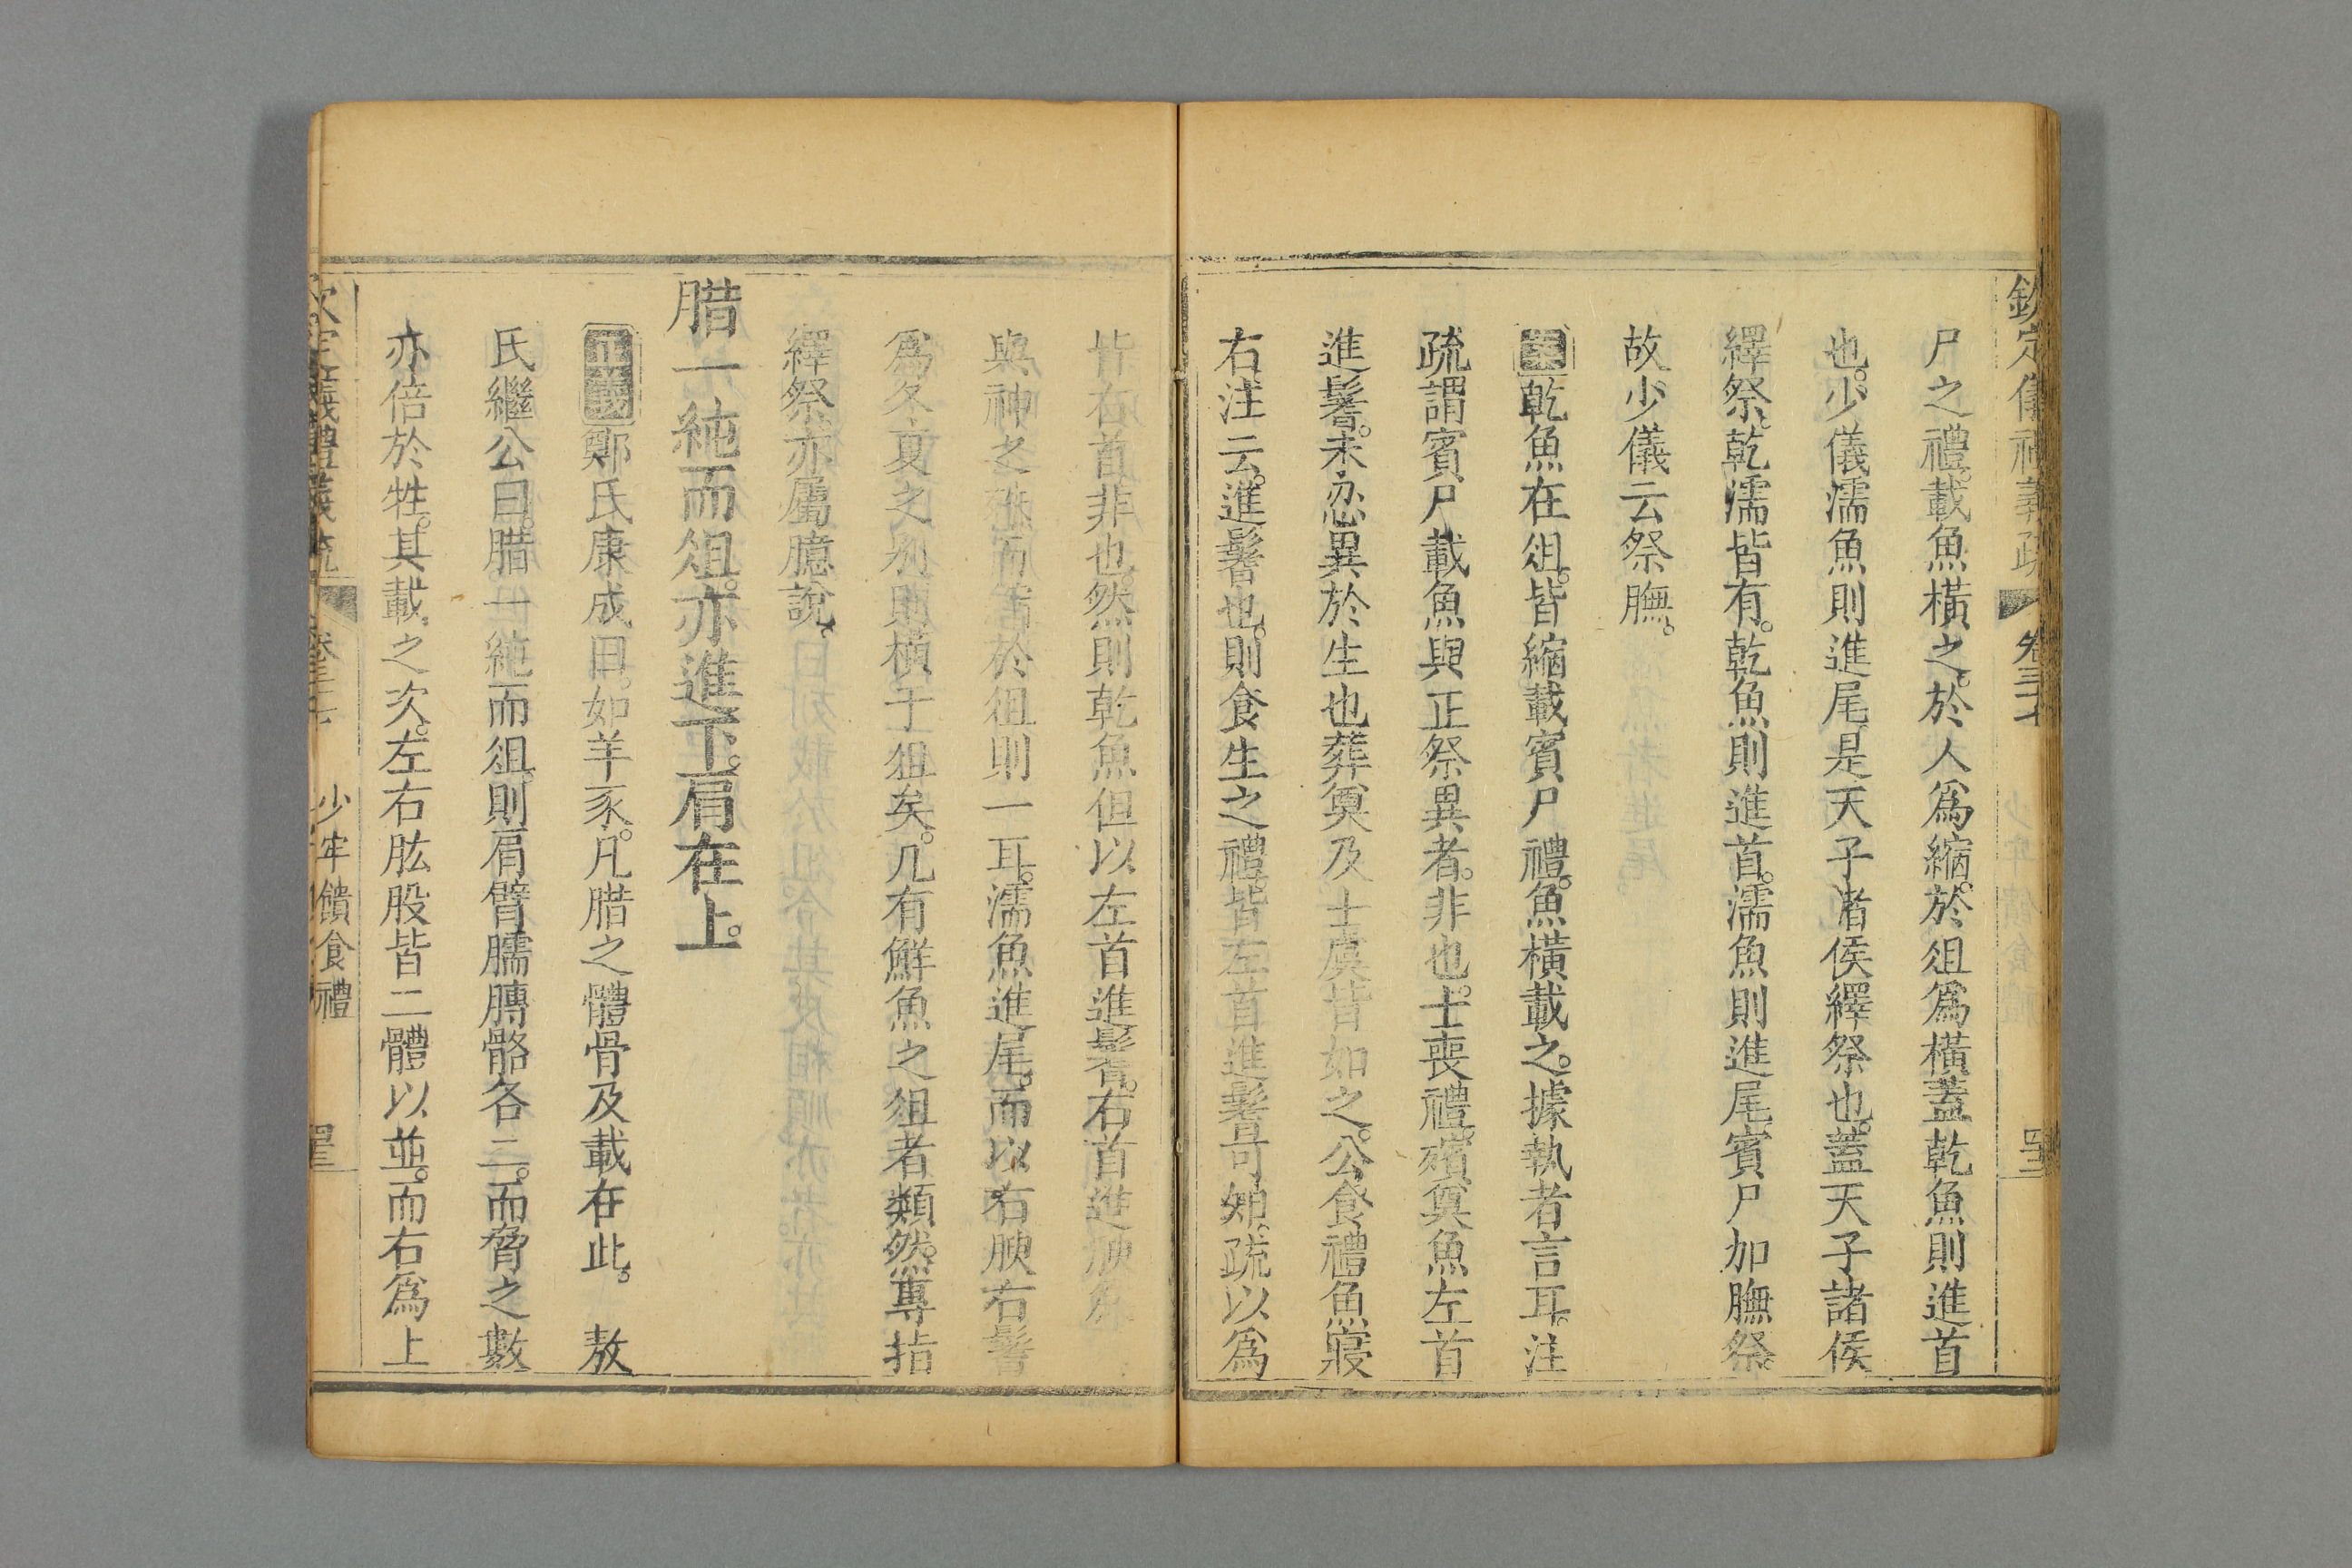 欽定儀禮義疏 卷三十七
尸之禮。載魚橫之。於人爲縮。於俎爲橫蓋乾魚則進首
也。少儀濡魚則進尾是天子諸侯繹祭也。蓋天子諸侯
繹祭。乾濡皆有。乾魚則進首。濡魚則進尾賓尸加膴祭。
故少儀云祭膴。
案乾魚在俎。皆縮載賓尸禮。魚橫載之。據執者言耳。注
疏謂賓尸載魚與正祭異者。非也。士喪禮。殯奠魚左首
進鬐。未忍異於生也葬奠及士虞皆如之。公食禮魚寢
右注云。進鬐也。則食生之禮。皆左首進鬐可知。疏以爲
皆右首非也。然則乾魚但以左首進鬐。右首進腴爲
與神之
而
於俎則一耳。濡魚進尾。而以右腴右鬐
爲冬夏之別則橫于俎矣。凡有鮮魚之俎者類然。專指
繹祭亦屬臆說。
腊一純而俎。亦進下。肩在上。
正義鄭氏康成曰。如羊豕。凡腊之體骨及載在此。 敖
氏繼公曰。腊一純而俎。則肩臂臑膊骼各二。而脅之數
亦倍於牲。其載之次。左右肱股皆二體以並。而右爲上
欽定儀禮義疏 卷三十七 少牢饋食禮